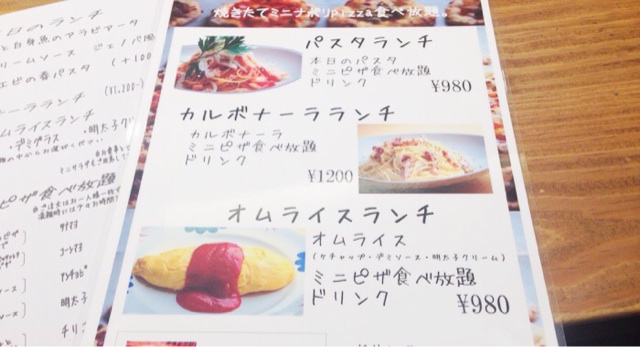 焼きたてミニナポリpizza食べ放題。
パスタランチ
本日のパスタ
ミニピザ食べ放題
ドリンク
¥980
カルボナーラランチ
カルボナーラ
ミニピザ食べ放題
ドリンク
¥1200
オムライスランチ
オムライス
(ケチャップ・デミソース・明太子クリーム)
ミニピザ食べ放題
ドリンク
¥980
日のランチ
と白身魚のアラビアータ
リームソース ジェノバ風
エビの春パスタ (+100
ーラランチ
(¥1,200-
ムライスランチ
・デミグラス ・明太子ク
ピザ食べ放題
明太子